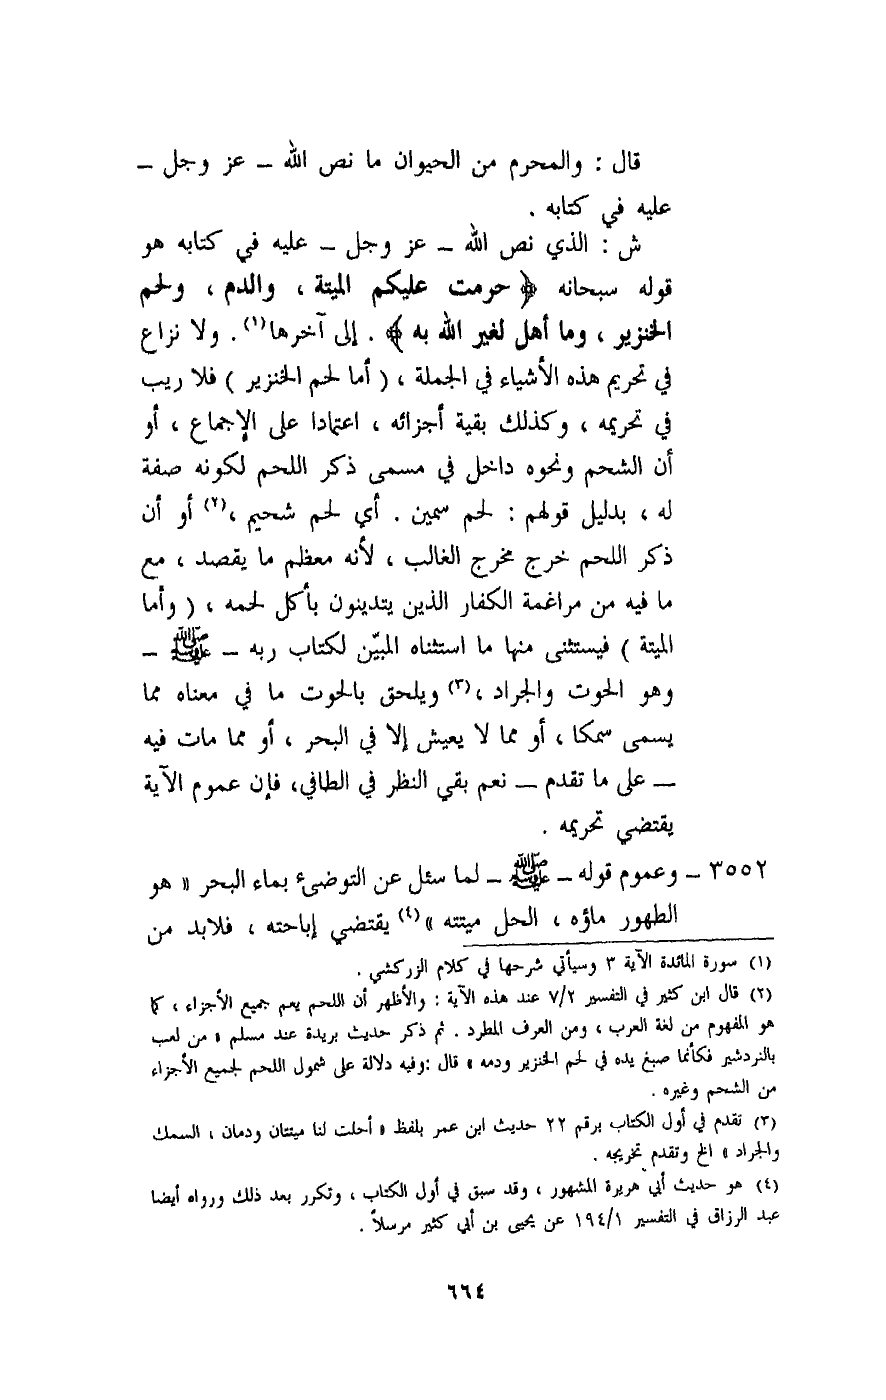 قال : والمحرم من الحيوان ما نص الله ــ عز وجل ــ
عليه في كتابه .
ش : الذي نص الله ــ عز وجل ــ عليه في كتابه هو
قوله سبحانه ﴿ حرمت عليكم الميتة ، والدم ، ولحم
الخنزير ، وما أهل لغير الله به ﴾ . إلى آخرها(١). ولا نزاع
في تحريم هذه الأشياء في الجملة ، ( أما لحم الخنزير ) فلا ريب
في تحريمه ، وكذلك بقية أجزائه ، اعتمادا على الإجماع ، أو
أن الشحم ونحوه داخل في مسمى ذكر اللحم لكونه صفة
له ، بدليل قولهم : لحم سمين . أي لحم شحيم ،(٢) أو أن
ذكر اللحم خرج مخرج الغالب ، لأنه معظم ما يقصد ، مع
ما فيه من مراغمة الكفار الذين يتدينون بأكل لحمه ، ( وأما
الميتة ) فيستثنى منها ما استثناه المبيّن لكتاب ربه ــ ﷺ ــ
وهو الحوت والجراد ،(٣) ويلحق بالحوت ما في معناه مما
يسمى سمكا ، أو مما لا يعيش إلا في البحر ، أو مما مات فيه
ــ على ما تقدم ــ نعم بقي النظر في الطافي، فإن عموم الآية
يقتضي تحريمه .
٣٥٥٢ ــ وعموم قوله ــ ﷺ ــ لما سئل عن التوضىء بماء البحر « هو
الطهور ماؤه ، الحل ميتته »(٤) يقتضي إباحته ، فلابد من
(١) سورة المائدة الآية ٣ وسيأتي شرحها في كلام الزركشي .
(٢) قال ابن كثير في التفسير ٧/٢ عند هذه الآية : والأظهر أن اللحم يعم جميع الأجزاء ، كما
هو المفهوم من لغة العرب ، ومن العرف المطرد . ثم ذكر حديث بريدة عند مسلم « من لعب
بالنردشير فكأنما صبغ يده في لحم الخنزير ودمه » قال :وفيه دلالة على شمول اللحم لجميع الأجزاء
من الشحم وغيره .
(٣) تقدم في أول الكتاب برقم ٢٢ حديث ابن عمر بلفظ « أحلت لنا ميتتان ودمان ، السمك
والجراد » الخ وتقدم تخريجه .
(٤) هو حديث أبي هريرة المشهور ، وقد سبق في أول الكتاب ، وتكرر بعد ذلك ورواه أيضا
عبد الرزاق في التفسير ١٩٤/١ عن يحيى بن أبي كثير مرسلاً .
٦٦٤